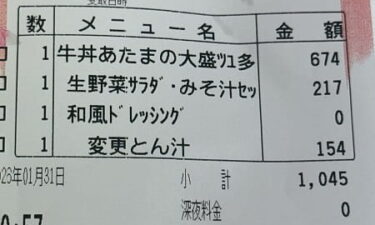 数 メニュー名 金額
1 牛丼あたまの大盛ﾂﾕ多 674
1 生野菜ｻﾗﾀﾞ･みそ汁ｾｯ 217
1 和風ﾄﾞﾚｯｼﾝｸﾞ 0
1 変更とん汁 154
01月31日 小計 1,045
深夜料金 0